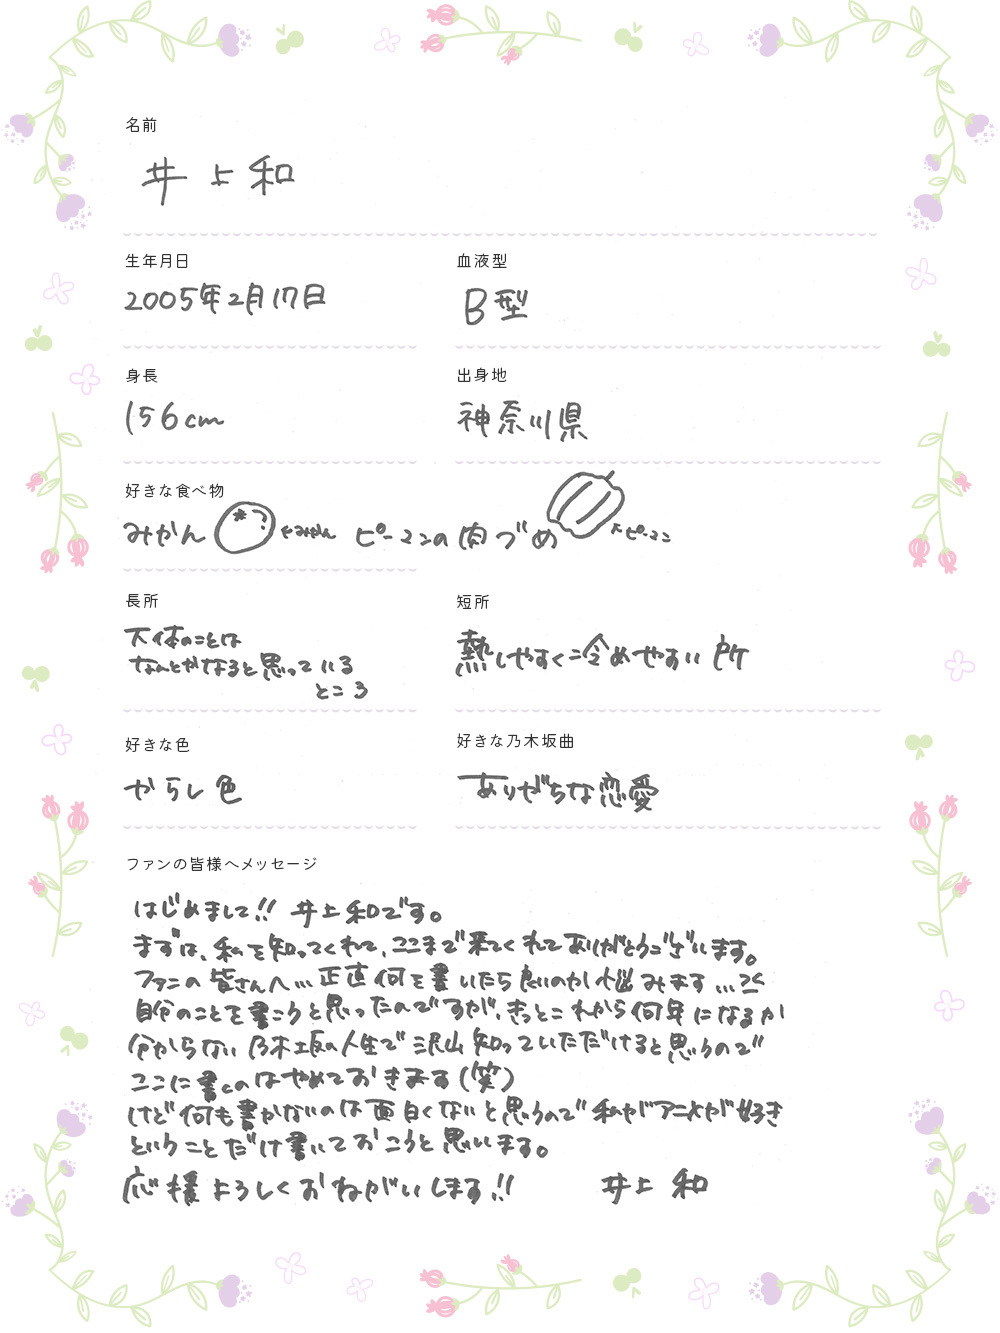 名前
井上和
生年月日
2005年2月17日
血液型
B型
身長
156cm
出身地
神奈川県
好きな食べ物
みかん ←みかん ピーマンの肉づめ ←ピーマン
長所
大体のことは
なんとかなると思っている
ところ
短所
熱しやすく冷めやすい所
好きな色
からし色
好きな乃木坂曲
ありがちな恋愛
ファンの皆様へメッセージ
はじめまして!! 井上和です。
まずは、私を知ってくれて、ここまで来てくれてありがとうございます。
ファンの皆さんへ…正直何を書いたら良いのか悩みます…
自分のことを書こうと思ったのですが、きっとこれから何年になるか
分からない乃木坂の人生で沢山知っていただけると思うので
ここに書くのはやめておきます(笑)
けど何も書かないのは面白くないと思うので私がアニメが好き
ということだけ書いておこうと思います。
応援よろしくおねがいします!! 井上和